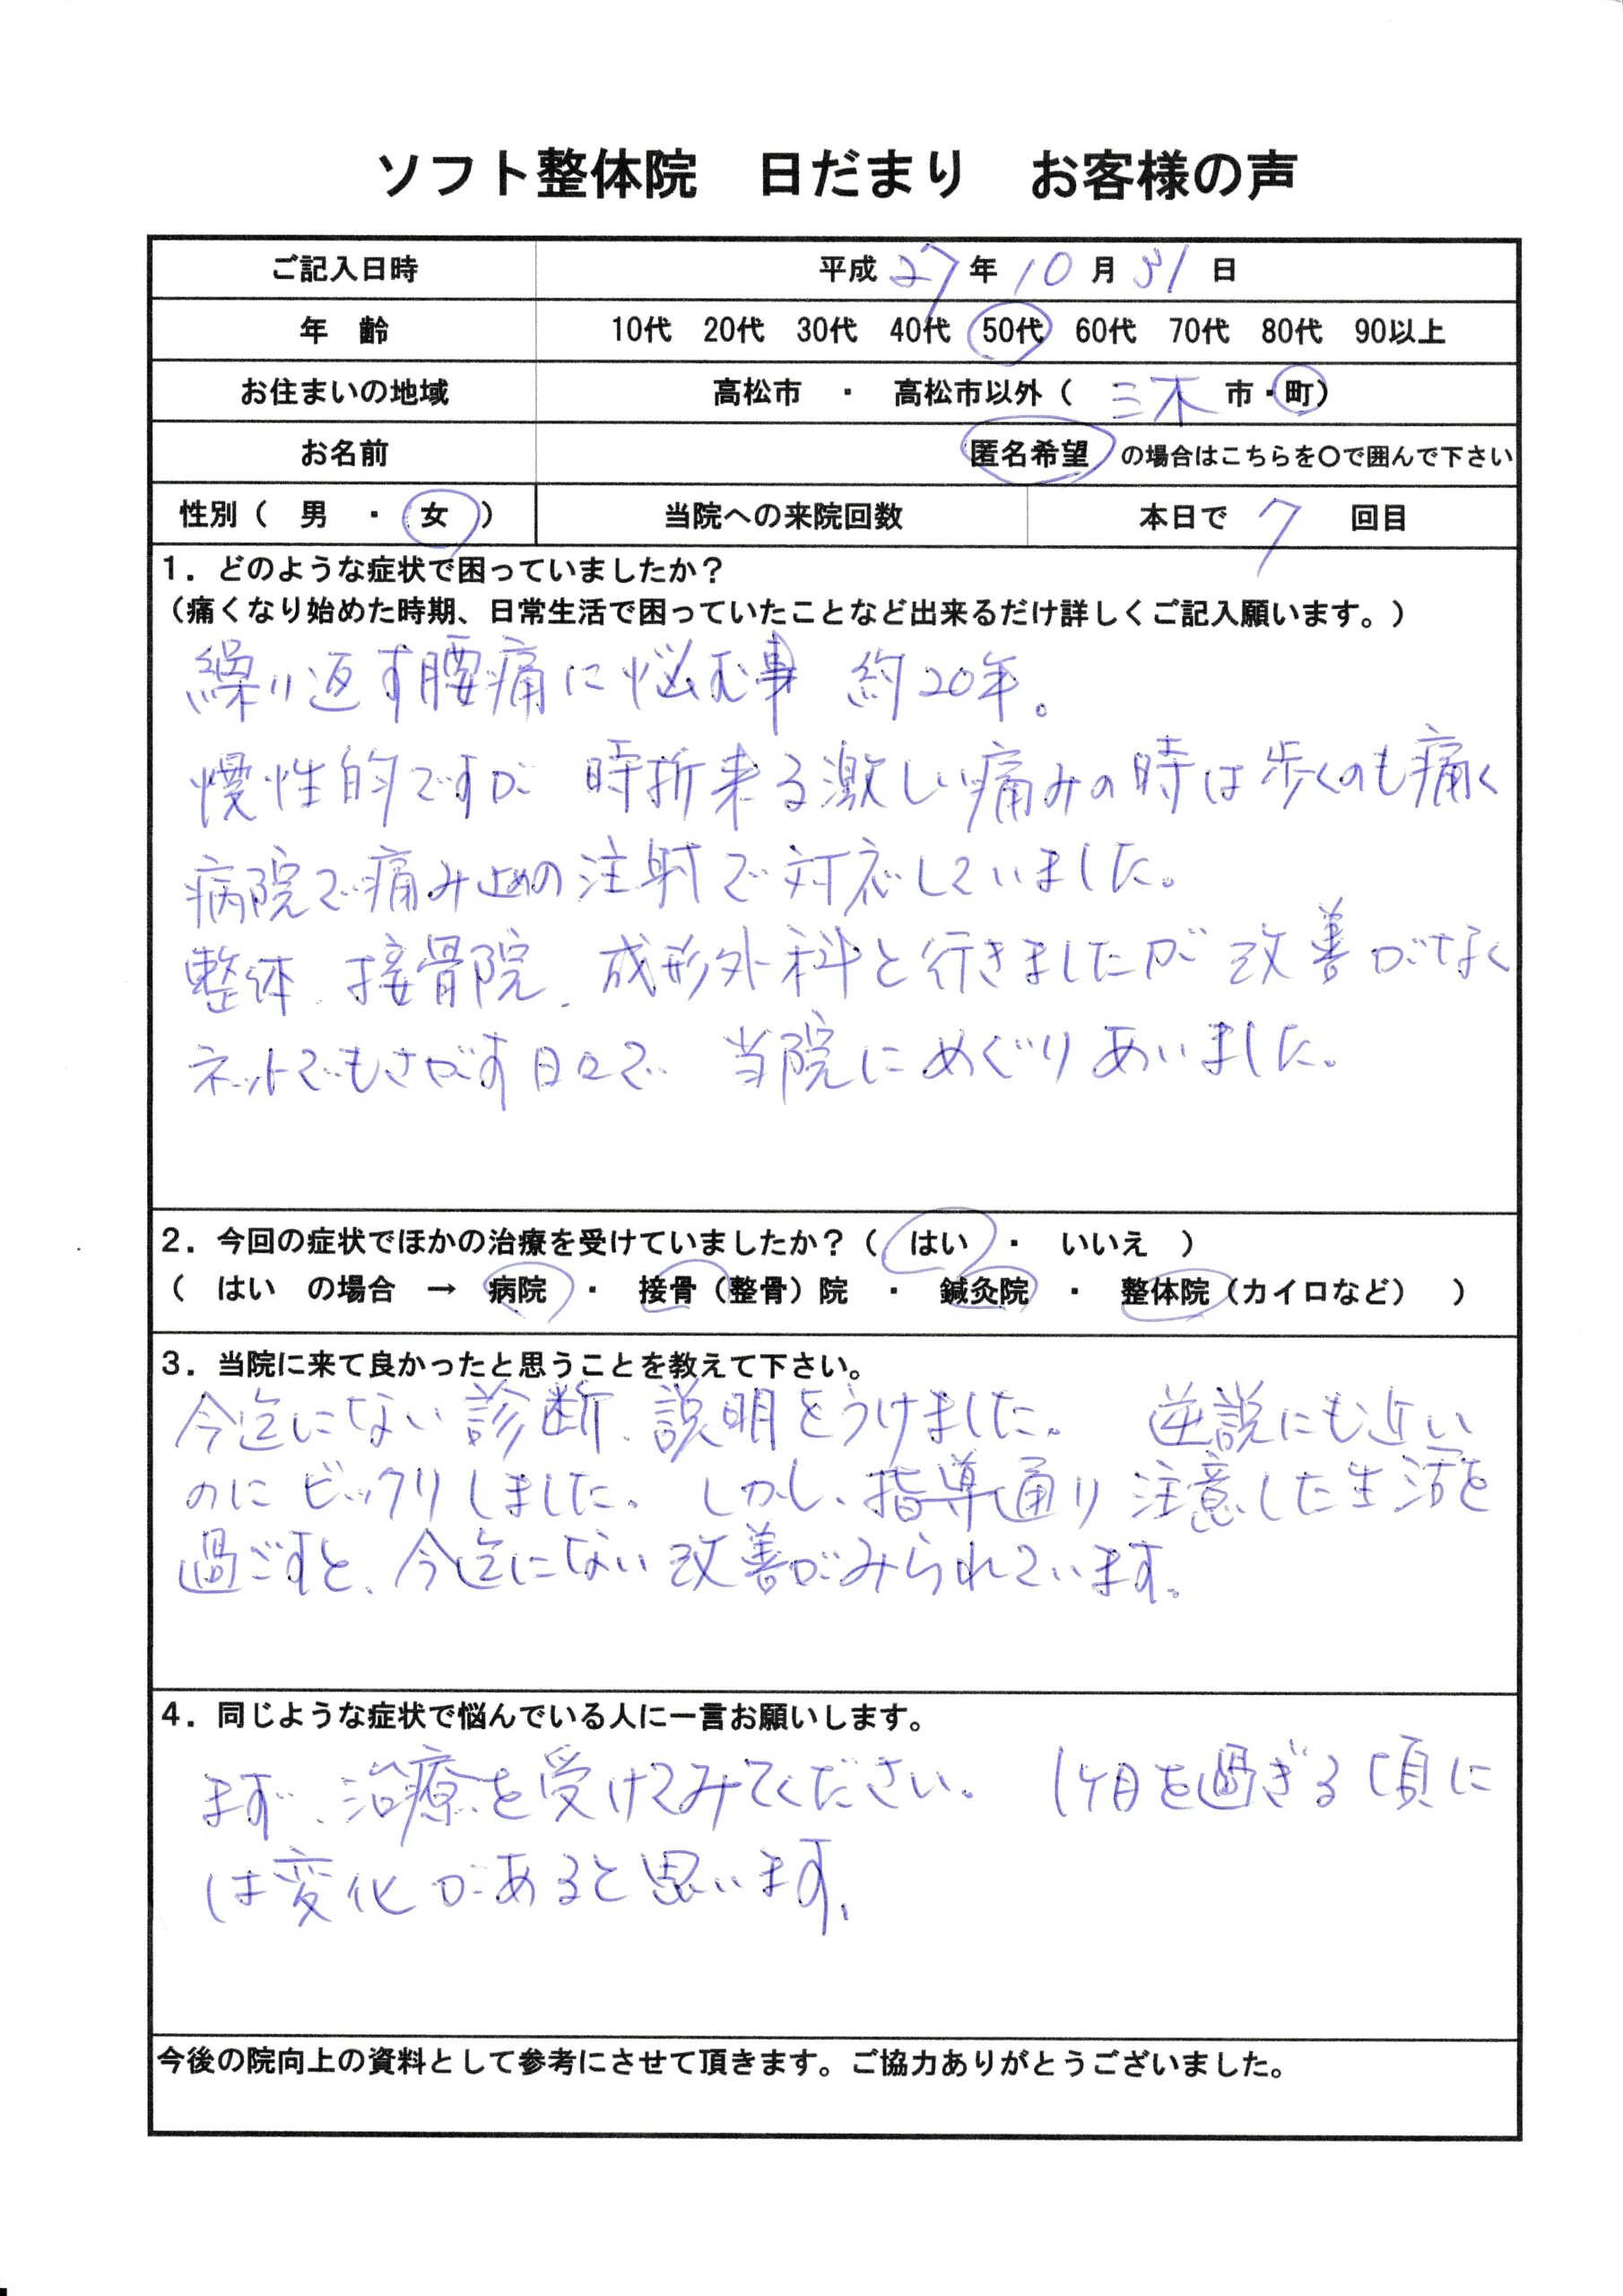 ソフト整体院 日だまり お客様の声
ご記入日時 平成 27 年 10 月 31 日
年 齢 10代 20代 30代 40代 50代 60代 70代 80代 90以上
お住まいの地域 高松市 ・ 高松市以外（ 三木 市・町）
お名前 匿名希望 の場合はこちらを〇で囲んで下さい
性別（ 男 ・ 女 ） 当院への来院回数 本日で 7 回目
1．どのような症状で困っていましたか？
（痛くなり始めた時期、日常生活で困っていたことなど出来るだけ詳しくご記入願います。）
繰り返す腰痛に悩む事 約20年。
慢性的ですが 時折来る激しい痛みの時は歩くのも痛く
病院で痛み止めの注射で対応していました。
整体、接骨院、成形外科と行きましたが 改善がなく
ネットでもさがす日々で 当院にめぐりあいました。
2．今回の症状でほかの治療を受けていましたか？（ はい ・ いいえ ）
（ はい の場合 → 病院 ・ 接骨（整骨）院 ・ 鍼灸院 ・ 整体院（カイロなど） ）
3．当院に来て良かったと思うことを教えて下さい。
今迄にない診断、説明をうけました。 逆説にも近い
のにビックリしました。しかし、指導通り注意した生活を
過ごすと、今迄にない改善がみられています。
4．同じような症状で悩んでいる人に一言お願いします。
まず、治療を受けてみてください。 1ヶ月を過ぎる頃に
は変化があると思います。
今後の院向上の資料として参考にさせて頂きます。ご協力ありがとうございました。